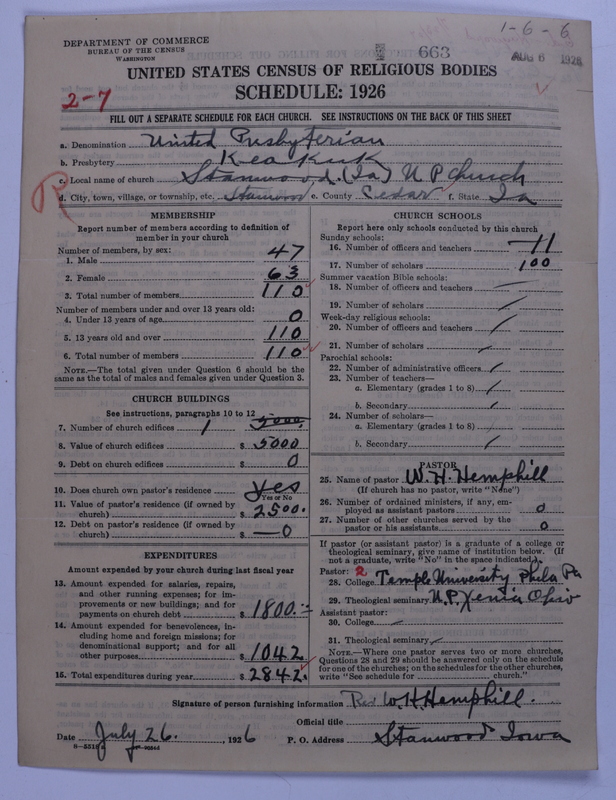 1-6-6
DEPARTMENT OF COMMERCE
BUREAU OF THE CENSUS
WASHINGTON
663
AUG 6 1926
UNITED STATES CENSUS OF RELIGIOUS BODIES
SCHEDULE: 1926
2-7
FILL OUT A SEPARATE SCHEDULE FOR EACH CHURCH. SEE INSTRUCTIONS ON THE BACK OF THIS SHEET
a. Denomination United Presbyterian
b. Presbytery Keokuk
c. Local name of church Stanwood (Ia) U P Church
d. City, town, village, or township, etc. Stanwood e. County Cedar f. State Ia
MEMBERSHIP
Report number of members according to definition of
member in your church
Number of members, by sex:
1. Male 47
2. Female 63
3. Total number of members 110
Number of members under and over 13 years old:
4. Under 13 years of age 0
5. 13 years old and over 110
6. Total number of members 110
NOTE.—The total given under Question 6 should be the
same as the total of males and females given under Question 3.
CHURCH BUILDINGS
See instructions, paragraphs 10 to 12
7. Number of church edifices 1 5000
8. Value of church edifices $ 5000
9. Debt on church edifices $ 0
10. Does church own pastor's residence yes
Yes or No
11. Value of pastor's residence (if owned by
church) $ 2500.
12. Debt on pastor's residence (if owned by
church) $ 0
EXPENDITURES
Amount expended by your church during last fiscal year
13. Amount expended for salaries, repairs,
and other running expenses; for im-
provements or new buildings; and for
payments on church debt $ 1800.
14. Amount expended for benevolences, in-
cluding home and foreign missions; for
denominational support; and for all
other purposes $ 1042
15. Total expenditures during year $ 2842
CHURCH SCHOOLS
Report here only schools conducted by this church
Sunday schools:
16. Number of officers and teachers 11
17. Number of scholars 100
Summer vacation Bible schools:
18. Number of officers and teachers
19. Number of scholars
Week-day religious schools:
20. Number of officers and teachers
21. Number of scholars
Parochial schools:
22. Number of administrative officers
23. Number of teachers—
a. Elementary (grades 1 to 8)
b. Secondary
24. Number of scholars—
a. Elementary (grades 1 to 8)
b. Secondary
PASTOR
25. Name of pastor W. H. Hemphill
(If church has no pastor, write "None")
26. Number of ordained ministers, if any, em-
ployed as assistant pastors 0
27. Number of other churches served by the
pastor or his assistants 0
If pastor (or assistant pastor) is a graduate of a college or
theological seminary, give name of institution below. (If
not a graduate, write "No" in the space indicated.)
Pastor: 2
28. College Temple University Phila Pa
29. Theological seminary U.P. Xenia Ohio
Assistant pastor:
30. College
31. Theological seminary
NOTE.—Where one pastor serves two or more churches,
Questions 28 and 29 should be answered only on the schedule
for one of the churches; on the schedules for the other churches,
write "See schedule for church."
Signature of person furnishing information Rev W. H. Hemphill.
Official title
Date July 26. , 1926 P. O. Address Stanwood Iowa